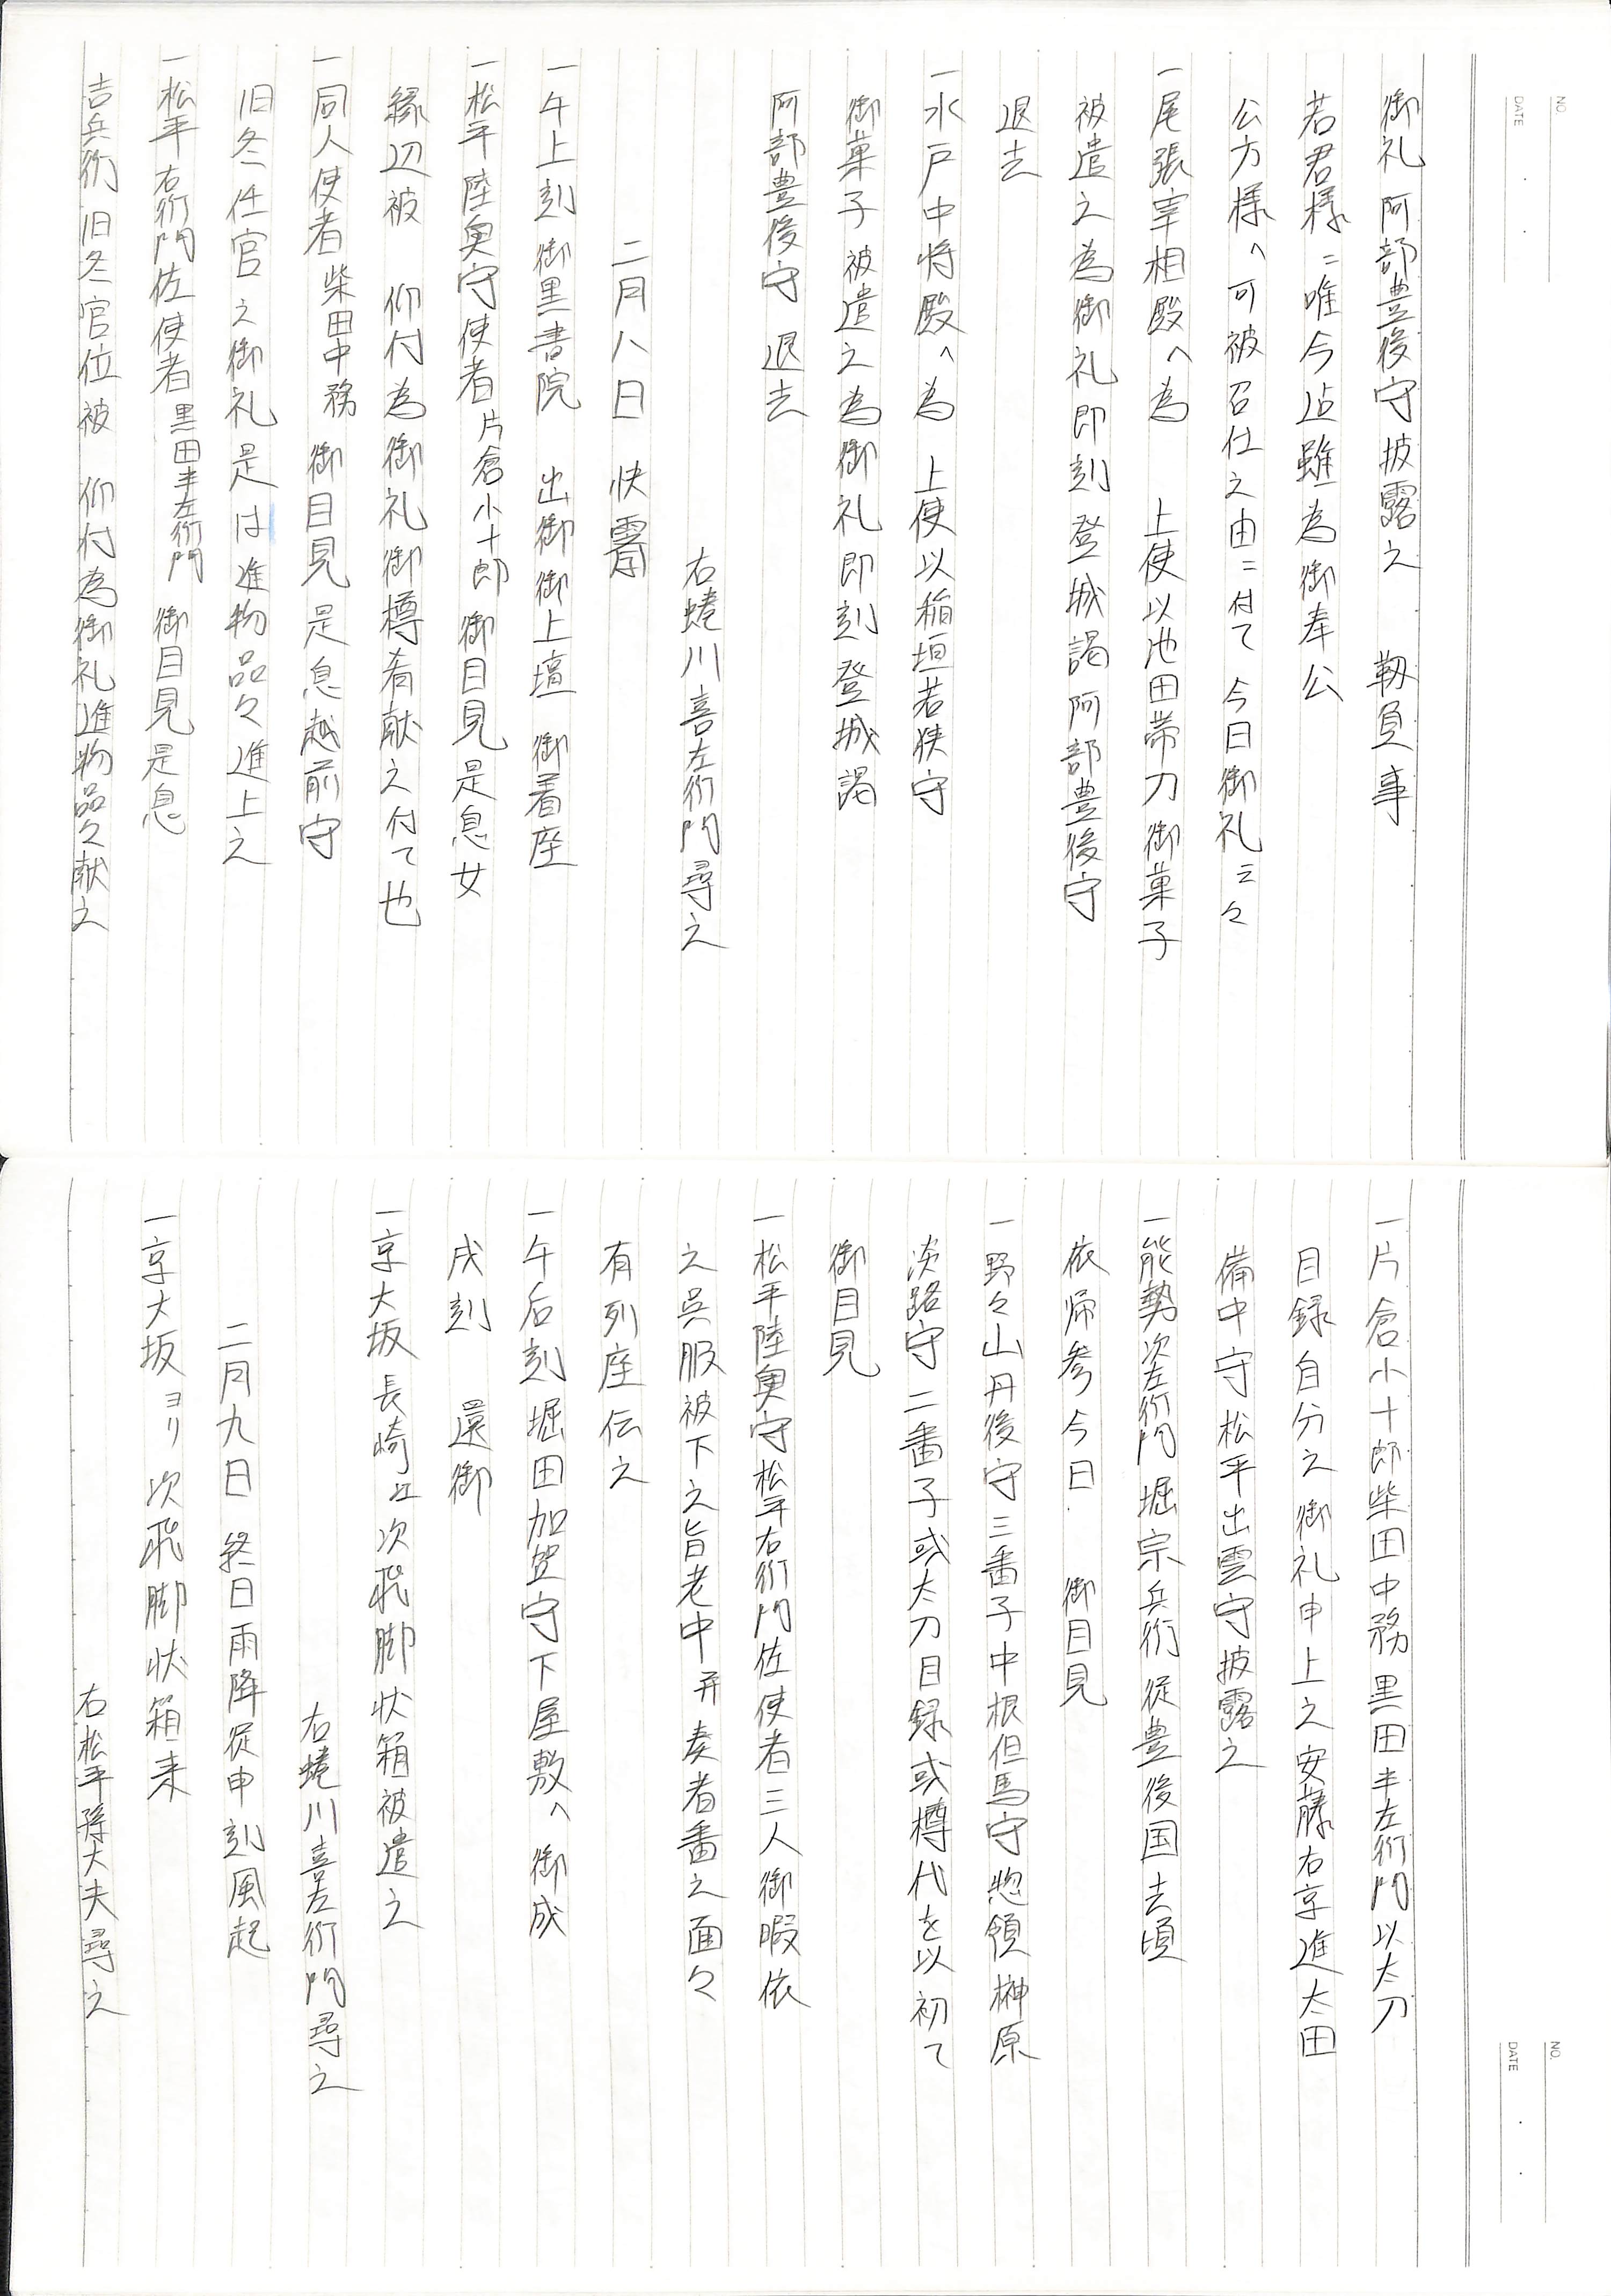 NO.
DATE
御礼 阿部豊後守披露之 靱負事
若君様ニ唯今迄雖為御奉公
公方様へ可被召仕之由ニ付て今日御礼云々
一尾張宰相殿へ為 上使以池田帯刀御菓子
被遣之為御礼即刻登城謁阿部豊後守
退去
一水戸中将殿へ為 上使以稲垣若狭守
御菓子被遣之為御礼即刻登城謁
阿部豊後守退去
右蜷川喜左衛門尋之
二月八日 快霽
一午上刻御黒書院 出御御上壇 御着座
一松平陸奥守使者片倉小十郎御目見是息女
縁辺被 仰付為御礼御樽肴献之付て也
一同人使者柴田中務 御目見是息越前守
旧冬任官之御礼是は進物品々進上之
一松平右衛門佐使者黒田半左衛門 御目見是息
吉兵衛旧冬官位被 仰付為御礼進物品々献之
NO.
DATE
一片倉小十郎柴田中務黒田半左衛門以太刀
目録自分之御礼申上之安藤右京進太田
備中守松平出雲守披露之
一能勢次左衛門堀宗兵衛従豊後国去頃
依帰参今日 御目見
一野々山丹後守三番子中根但馬守惣領榊原
淡路守二番子或太刀目録或樽代を以初て
御目見
一松平陸奥守松平右衛門佐使者三人御暇依
之呉服被下之旨老中并奏者番之面々
有列座伝之
一午后刻堀田加賀守下屋敷へ 御成
戌刻 還御
一京大坂長崎江次飛脚状箱被遣之
右蜷川喜左衛門尋之
二月九日 終日雨降従申刻風起
一京大坂ヨリ次飛脚状箱来
右松平孫大夫尋之